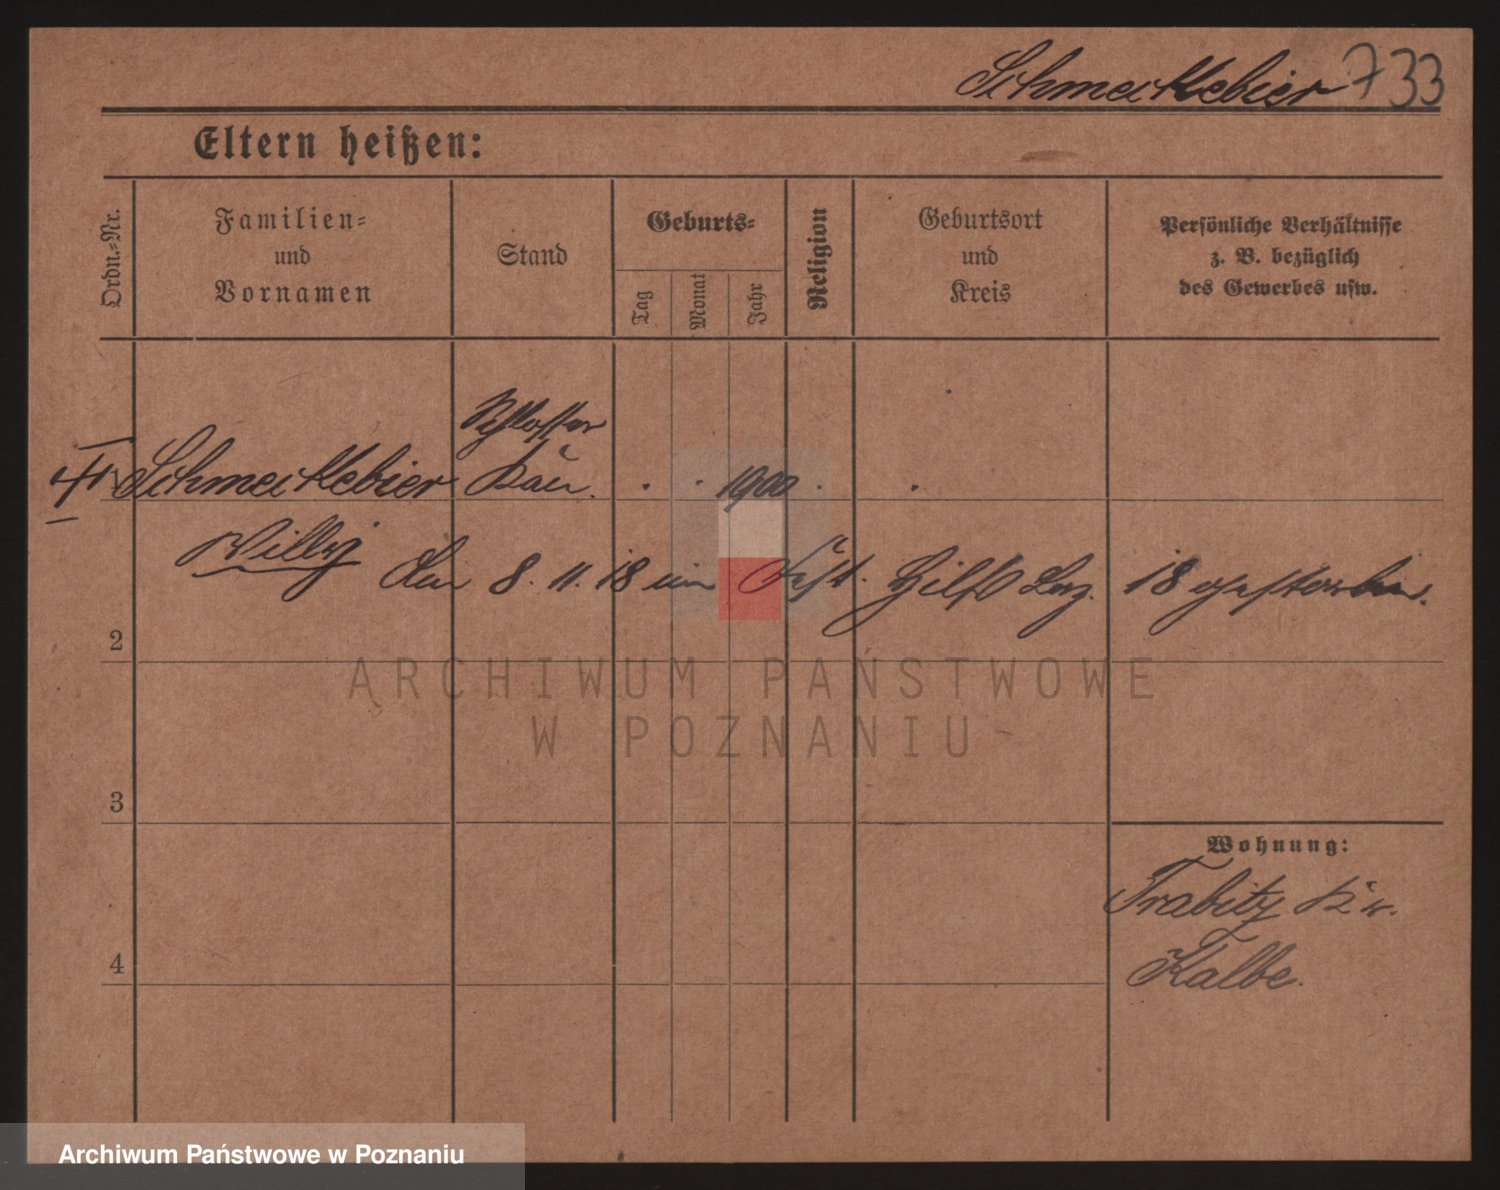 Schmeckebier 733
Eltern heißen:
Ordn.-Nr.
Familien-
und
Vornamen
Stand
Geburts-
Tag
Monat
Jahr
Religion
Geburtsort
und
Kreis
Persönliche Verhältnisse
z. B. bezüglich
des Gewerbes usw.
Schlosser
Schmeckebier 1900
Willy
den 8. 11. 18 im Fest. Hilfs Laz. 18 gestorben.
2
ARCHIWUM PAŃSTWOWE
W POZNANIU
3
Wohnung:
Trabitz Kr.
4
Kalbe.
Archiwum Państwowe w Poznaniu